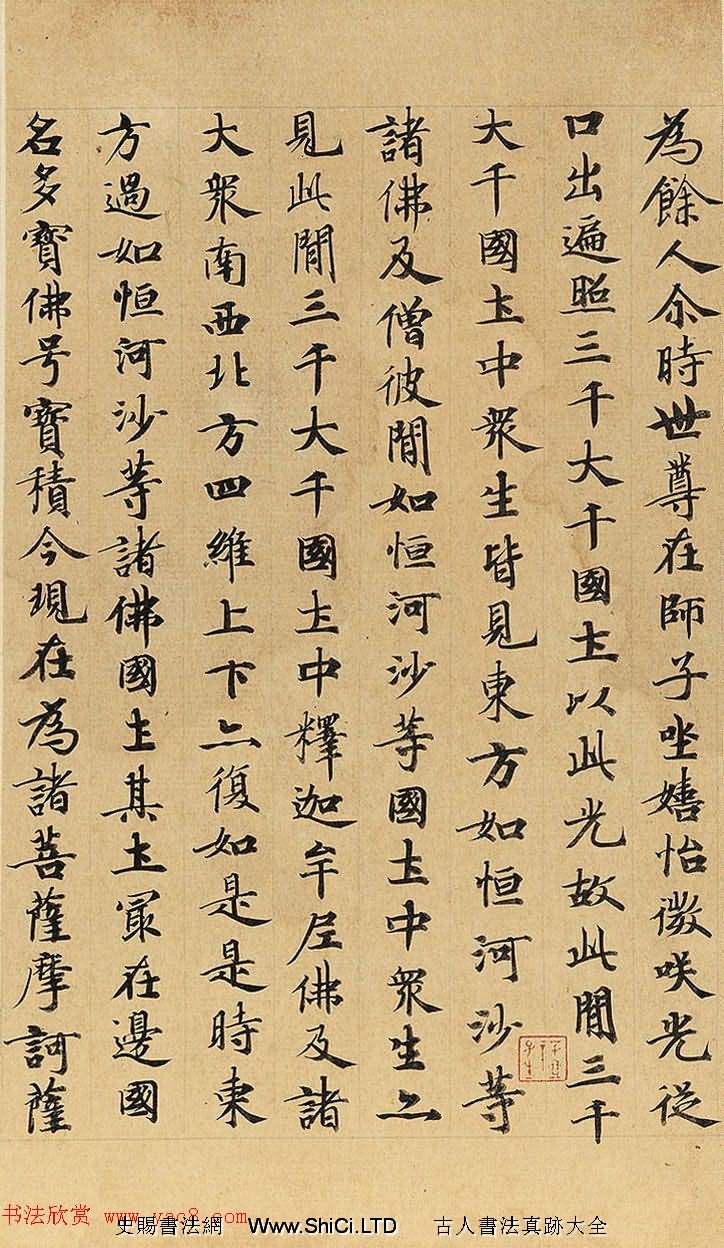 為餘人尒時世尊在師子坐嬉怡微咲光從
口出遍照三千大千國土以此光故此間三千
大千國土中衆生皆見東方如恒河沙等
諸佛及僧彼間如恒河沙等國土中衆生亦
見此間三千大千國土中釋迦牟尼佛及諸
大衆南西北方四維上下亦復如是是時東
方過如恒河沙等諸佛國土其土冣在邊國
名多寶佛号寶積今現在為諸菩薩摩訶薩
书法欣赏 www.yac8.com
史賜書法網 Www.ShiCi.LTD 古人書法真跡大全